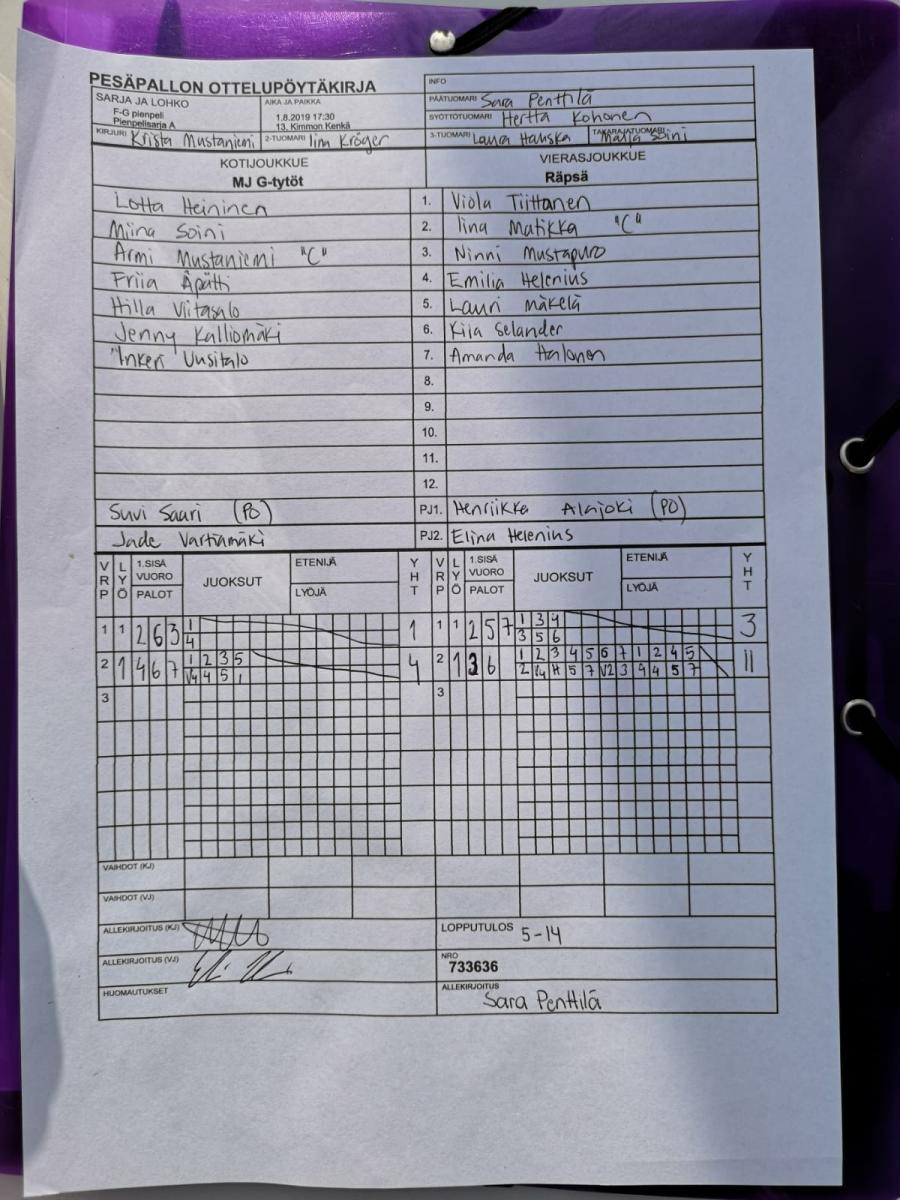 PESÄPALLON OTTELUPÖYTÄKIRJA
INFO
SARJA JA LOHKO
F-G pienpeli
Pienpelisarja A
AIKA JA PAIKKA
1.8.2019 17:30
13. Kimmon Kenkä
PÄÄTUOMARI Sara Penttilä
SYÖTTÖTUOMARI Hertta Kohonen
KIRJURI Krista Mustaniemi 2-TUOMARI Iina Kröger 3-TUOMARI Laura Hanska TAKARAJATUOMARI Marja Soini
KOTIJOUKKUE VIERASJOUKKUE
MJ G-tytöt Räpsä
Lotta Heininen 1. Viola Tiittanen
Miina Soini 2. Iina Matikka "C"
Armi Mustaniemi "C" 3. Ninni Mustapuro
Friia Äpätti 4. Emilia Helenius
Hilla Viitasalo 5. Lauri Mäkelä
Jenny Kalliomäki 6. Kiia Selander
Inkeri Uusitalo 7. Amanda Halonen
8.
9.
10.
11.
12.
Suvi Saari (PO) PJ1. Henriikka Alajoki (PO)
Jade Vartiamäki PJ2. Elina Helenius
VRP LYÖ 1.SISÄ VUORO PALOT JUOKSUT ETENIJÄ LYÖJÄ YHT VRP LYÖ 1.SISÄ VUORO PALOT JUOKSUT ETENIJÄ LYÖJÄ YHT
1 1 2 6 3 1 1 1 1 2 5 7 1 3 4 3
4 3 5 6
2 1 4 6 7 1 2 3 5 4 2 1 3 6 1 2 3 4 5 6 7 1 2 4 5 11
V4 4 5 1 2 V4 H 5 7 V2 3 4 4 5 7
3 3
VAIHDOT (KJ)
VAIHDOT (VJ)
ALLEKIRJOITUS (KJ) LOPPUTULOS 5-14
ALLEKIRJOITUS (VJ) NRO
733636
HUOMAUTUKSET ALLEKIRJOITUS
Sara Penttilä